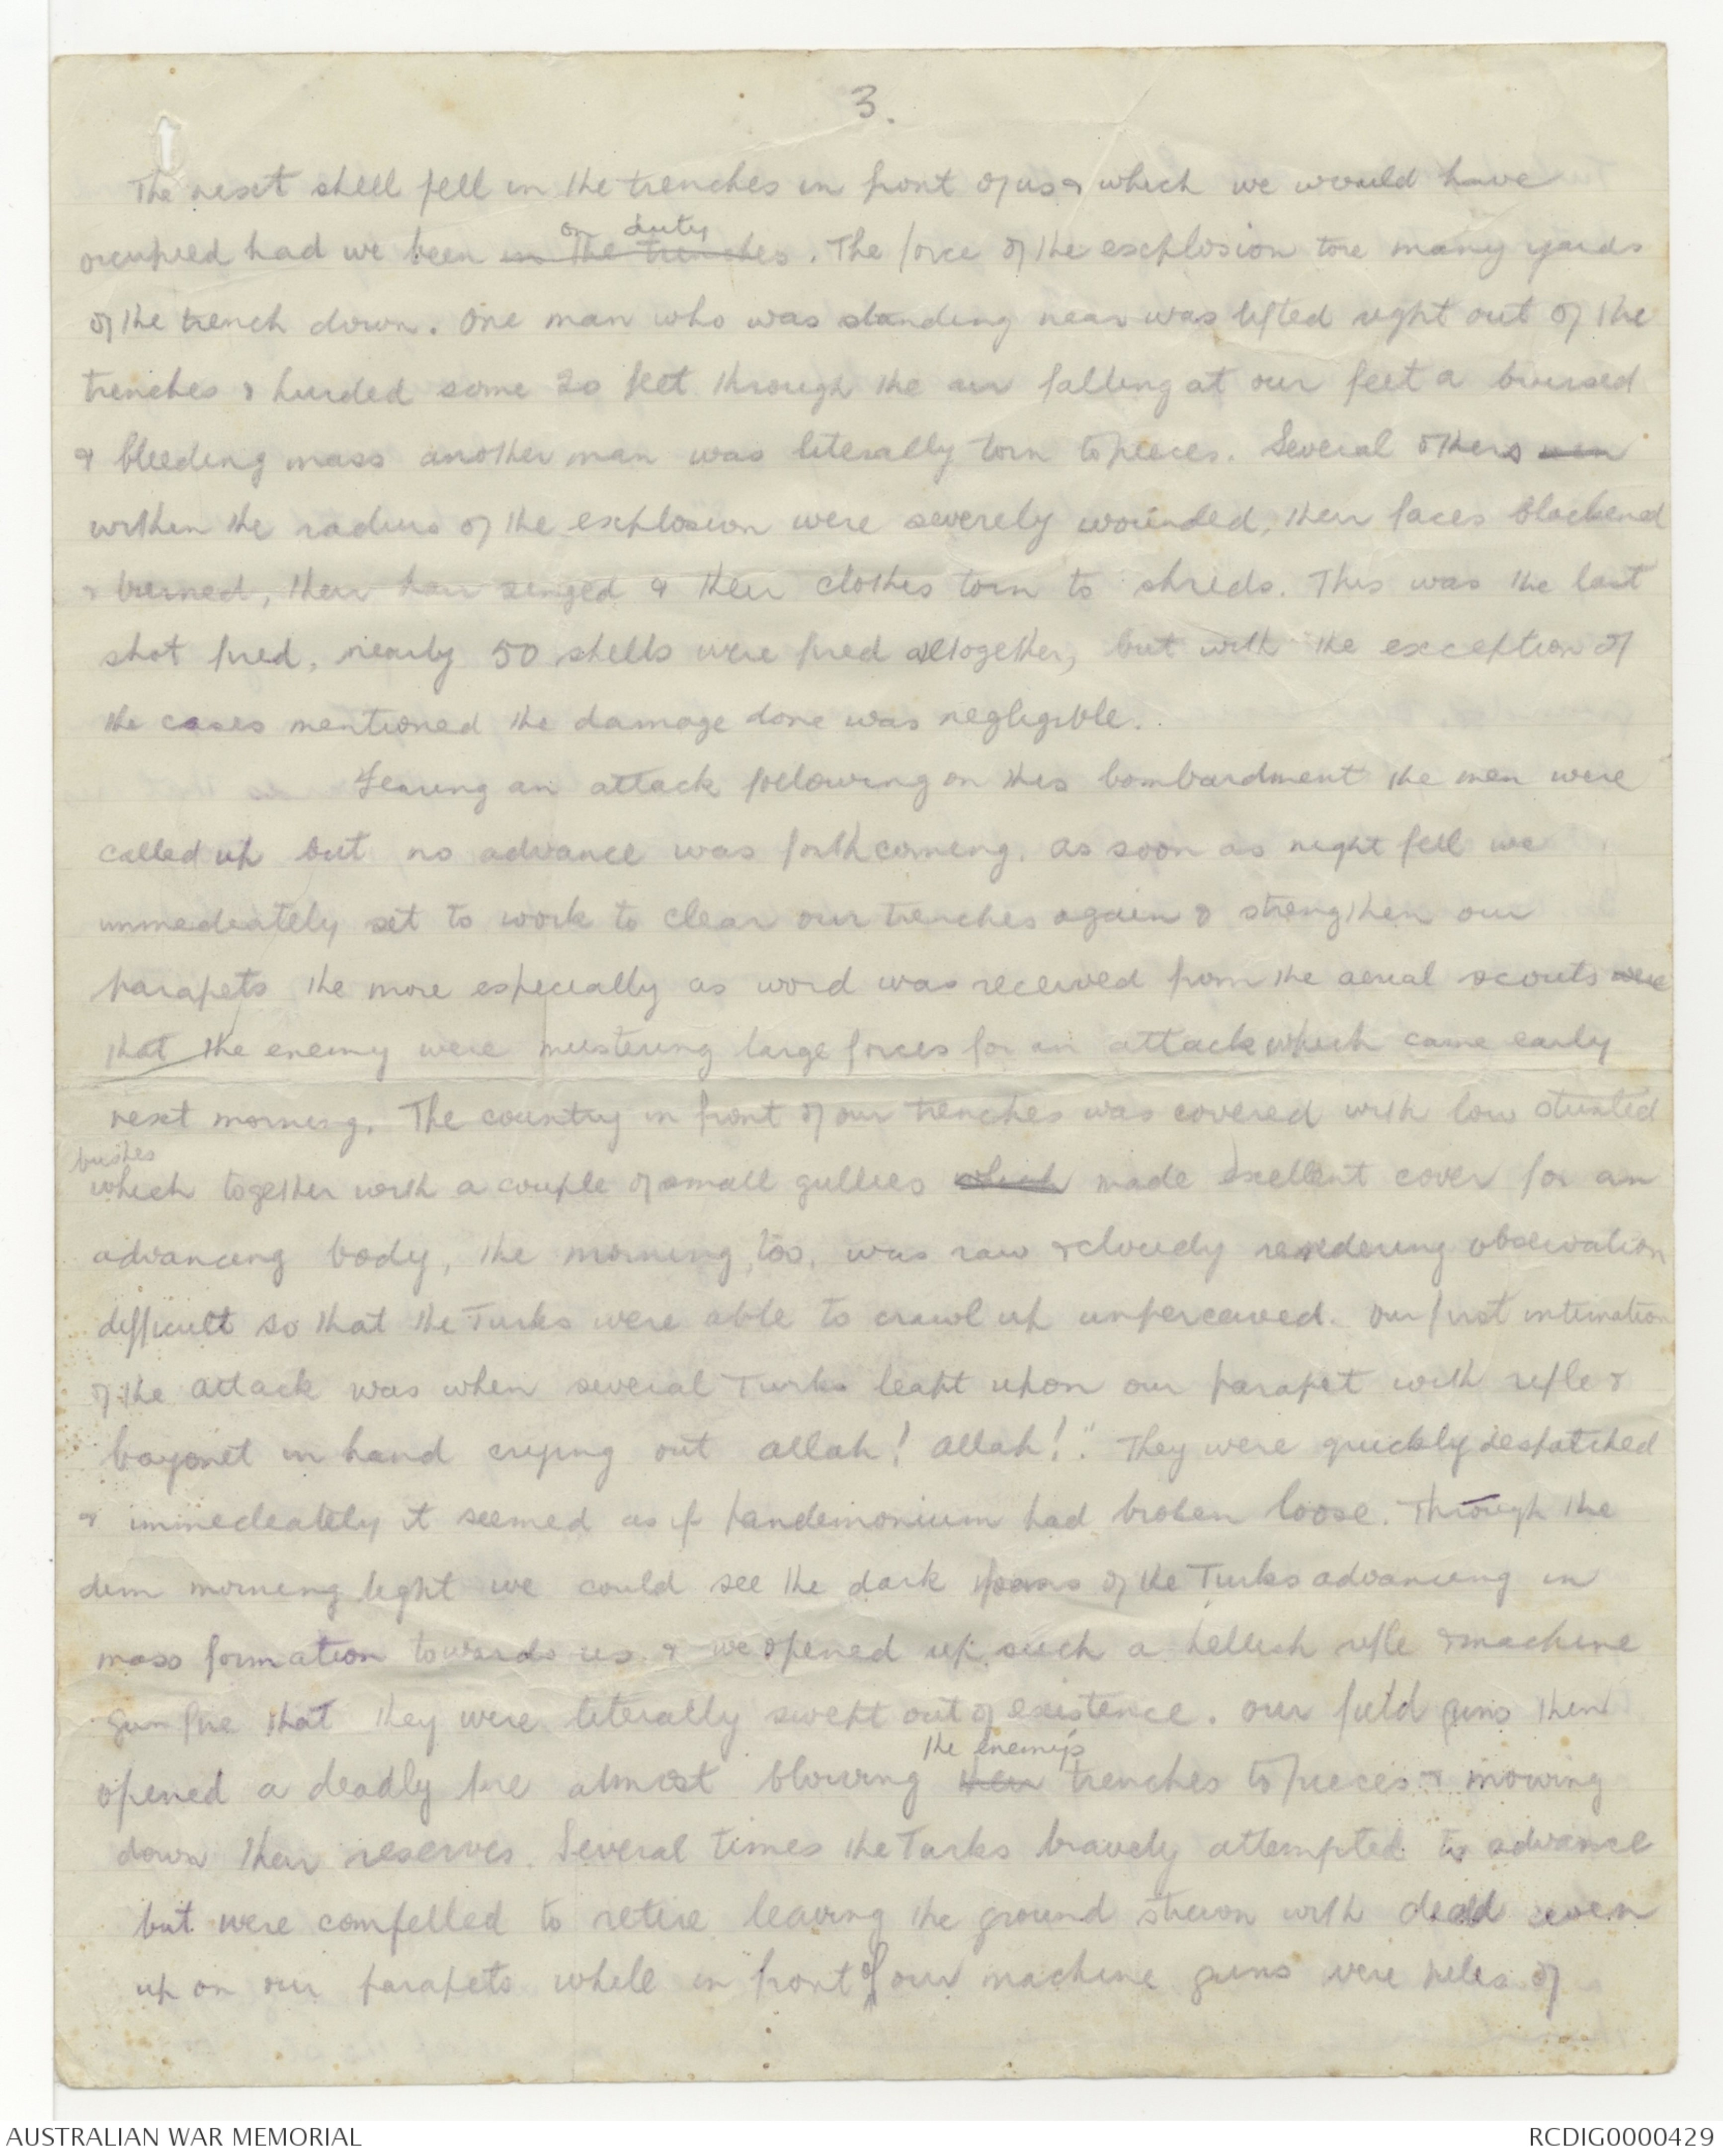 3.
The next shell fell in the trenches in front of us & which we would have
on duty
occupied had we been in the trenches. The force of the explosion tore many yards
of the trench down. One man who was standing near was lifted right out of the
trenches & hurded some 20 feet through the air falling at our feet a bruised
& bleeding mass another man was literally torn to pieces. Several others men
within the radius of the explosion were severely wounded, their faces blackened
& burned, their hair singed & their clothes torn to shreds. This was the last
shot fired, nearly 50 shells were fired altogether, but with the exception of
the cases mentioned the damage done was negligible.
Fearing an attack following on this bombardment the men were
called up but no advance was forthcoming. As soon as night fell we
immediately set to work to clear our trenches again & strengthen our
parapets the more especially as word was received from the aerial scouts were
that the enemy were mustering large forces for an attack which came early
next morning. The country in front of our trenches was covered with low stunted
bushes
which together with a couple of small gullies which made excellent cover for an
advancing body, the morning, too, was raw & cloudy rendering observation
difficult so that the Turks were able to crawl up unperceived. Our first intimation
of the attack was when several Turks leapt upon our parapet with rifle &
bayonet in hand crying out Allah! Allah!." They were quickly despatched
& immediately it seemed as if pandemonium had broken loose. Through the
dim morning light we could see the dark forms of the Turks advancing in
mass formation towards us & we opened up such a hellish rifle & machine
gun fire that they were literally swept out of existence. Our field guns then
the enemy's
opened a deadly fire almost blowing their trenches to pieces & mowing
down their reserves. Several times the Turks bravely attempted to advance
but were compelled to retire leaving the ground strewn with dead even
up on our parapets while in front of our machine guns were piles of
AUSTRALIAN WAR MEMORIAL
RCDIG0000429